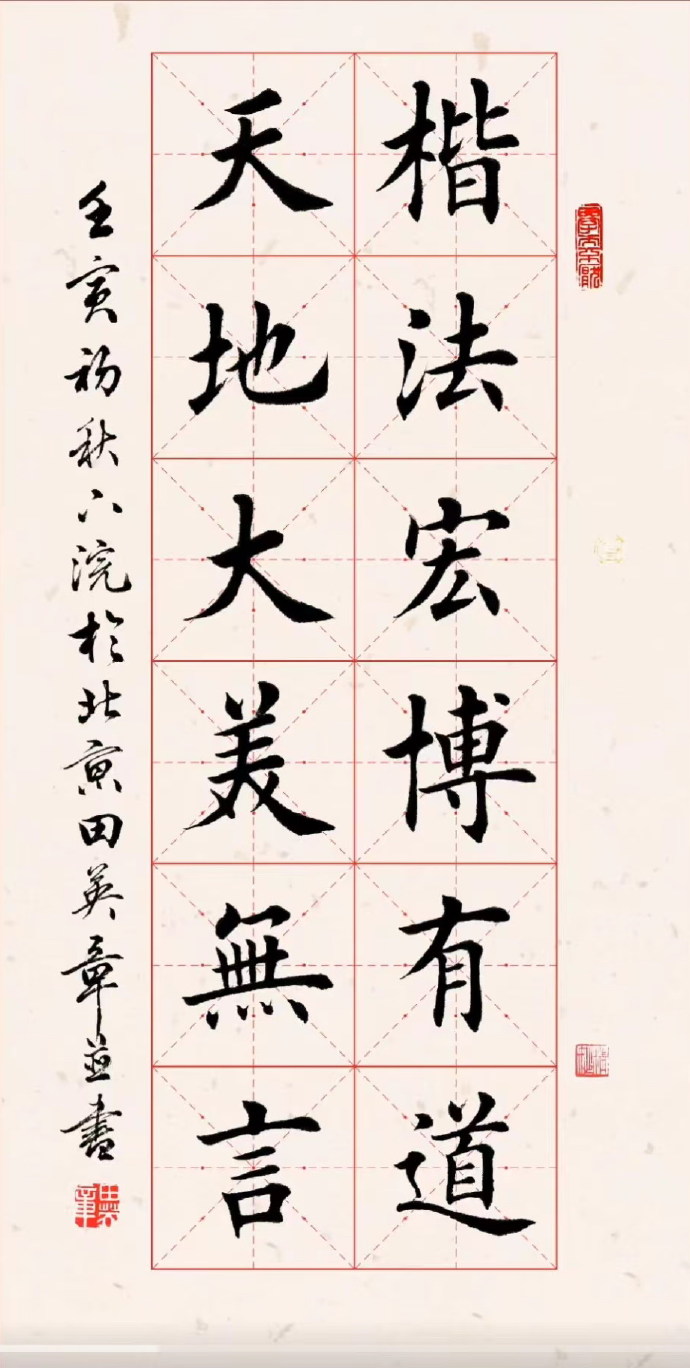 楷法宏博有道
天地大美無言
壬寅初秋六浣於北京田英章並書
田英章